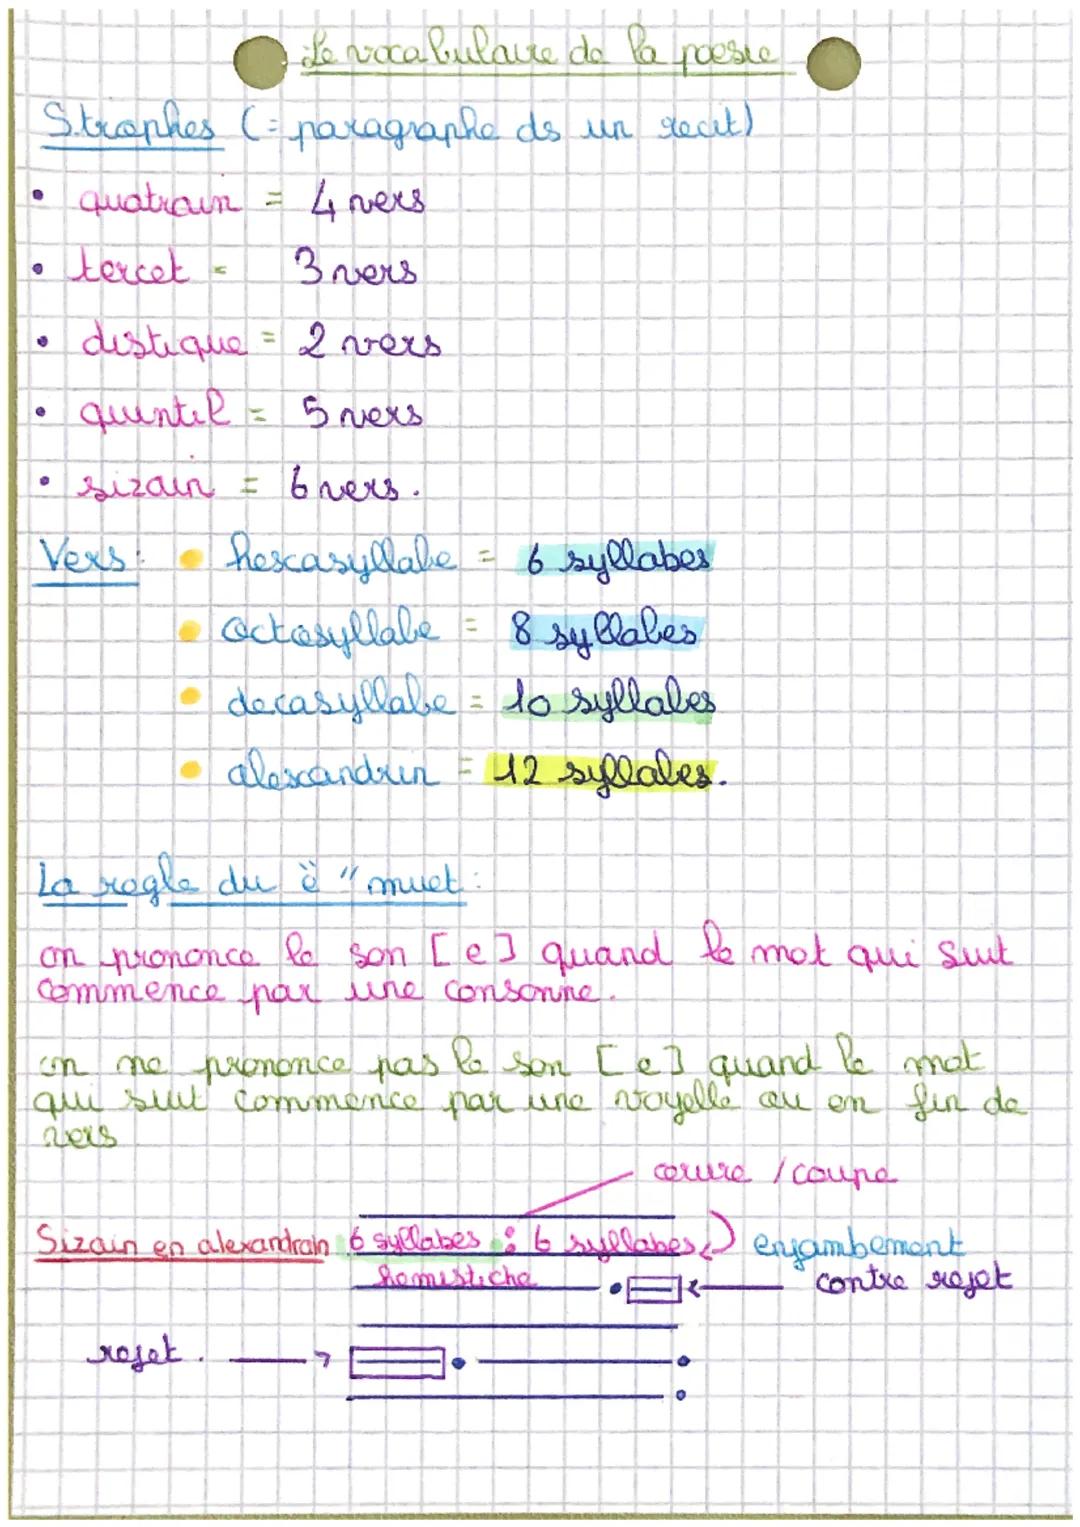 Le vocabulaire de la poesie
Strophes (= paragraphe ds un recit)
• quatrain = 4 vers
• tercet = 3 vers
• distique = 2 vers
• quintil = 5 vers
• sizain = 6 vers.
Vers: • hexasyllabe = 6 syllabes
• octosyllabe = 8 syllabes
• decasyllabe = 10 syllabes
• alexandrin = 12 syllabes.
La regle du ë "muet:
on prononce le son [e] quand le mot qui suit
commence par une consonne.
on ne prononce pas le son [e] quand le mot
qui suit commence par une voyelle ou en fin de
vers
cerure / coupe
Sizain en alexandrain 6 syllabes : 6 syllabes enjambement
hemistiche contre rejet
rejet.